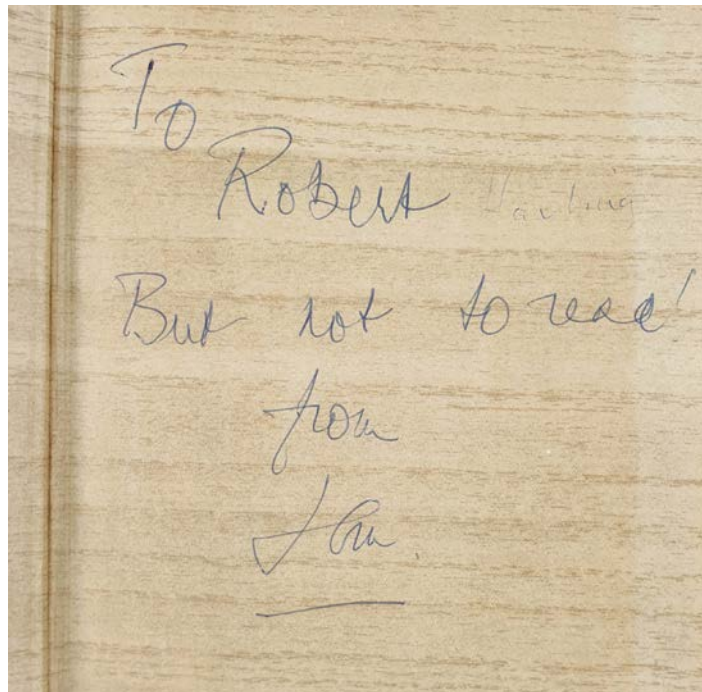 To
Robert Harling
But not to read!
from
Ian